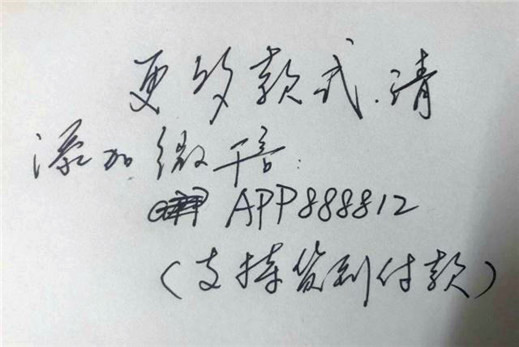 更多款式.请
添加微信:
APP888812
(支持货到付款)